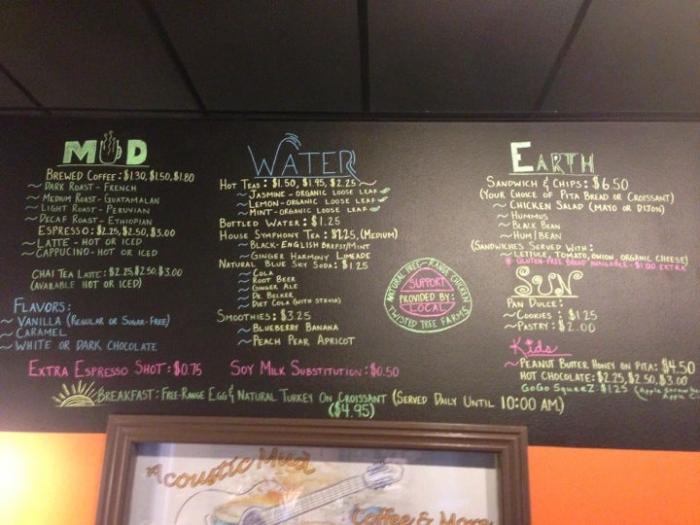 MUD
BREWED COFFEE: $1.30, $1.50, $1.80
~ DARK ROAST - FRENCH
~ MEDIUM ROAST - GUATAMALAN
~ LIGHT ROAST - PERUVIAN
~ DECAF ROAST - ETHIOPIAN
ESPRESSO: $2.25, $2.50, $3.00
~ LATTE - HOT OR ICED
~ CAPPUCINO - HOT OR ICED
CHAI TEA LATTE: $2.25, $2.50, $3.00
(AVAIABLE HOT OR ICED)
FLAVORS:
~ VANILLA (REGULAR OR SUGAR-FREE)
~ CARAMEL
~ WHITE OR DARK CHOCOLATE
WATER
HOT TEAS: $1.50, $1.95, $2.25
~ JASMINE - ORGANIC LOOSE LEAF
~ LEMON - ORGANIC LOOSE LEAF
~ MINT - ORGANIC LOOSE LEAF
BOTTLED WATER: $1.25
HOUSE SYMPHONY TEA: $1.25, (MEDIUM)
~ BLACK - ENGLISH BREFST/MINT
~ GINGER HARMONY LIMEADE
NATURAL BLUE SKY SODA: $1.25
~ COLA
~ ROOT BEER
~ GINGER ALE
~ DR. BECKER
~ DIET COLA (WITH STEVIA)
SMOOTHIES: $3.25
~ BLUEBERRY BANANA
~ PEACH PEAR APRICOT
NATURAL FREE-RANGE CHICKEN
SUPPORT
PROVIDED BY:
LOCAL
TWISTED TREE FARMS
EARTH
SANDWICH & CHIPS: $6.50
(YOUR CHOICE OF PITA BREAD OR CROISSANT)
~ CHICKEN SALAD (MAYO OR DIJON)
~ HUMMUS
~ BLACK BEAN
~ HUM/BEAN
(SANDWICHES SERVED WITH:
~ LETTUCE, TOMATO, ONION, ORGANIC CHEESE)
* GLUTEN-FREE BREAD AVAILABLE - $1.00 EXTRA
SUN
PAN DULCE:
~ COOKIES: $1.25
~ PASTRY: $2.00
Kids
~ PEANUT BUTTER HONEY ON PITA: $4.50
HOT CHOCOLATE: $2.25, $2.50, $3.00
GOGO SQUEEZ: $1.25 (Apple
Apple
EXTRA ESPRESSO SHOT: $0.75
SOY MILK SUBSTITUTION: $0.50
BREAKFAST: FREE-RANGE EGG & NATURAL TURKEY ON CROISSANT (SERVED DAILY UNTIL 10:00 AM)
($4.95)
Acoustic Mud
Coffee & More